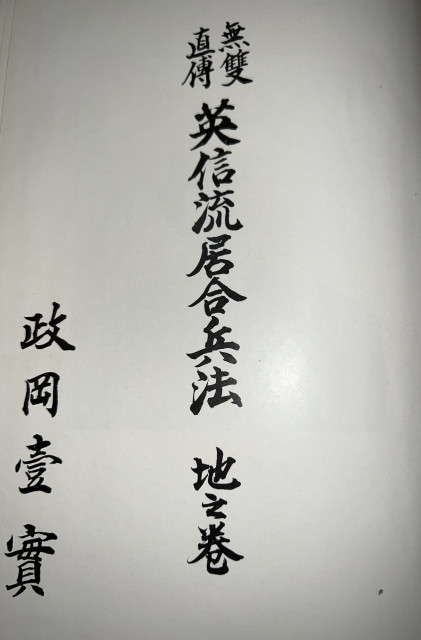 無雙
直傳
英信流居合兵法 地之巻
政岡壹實